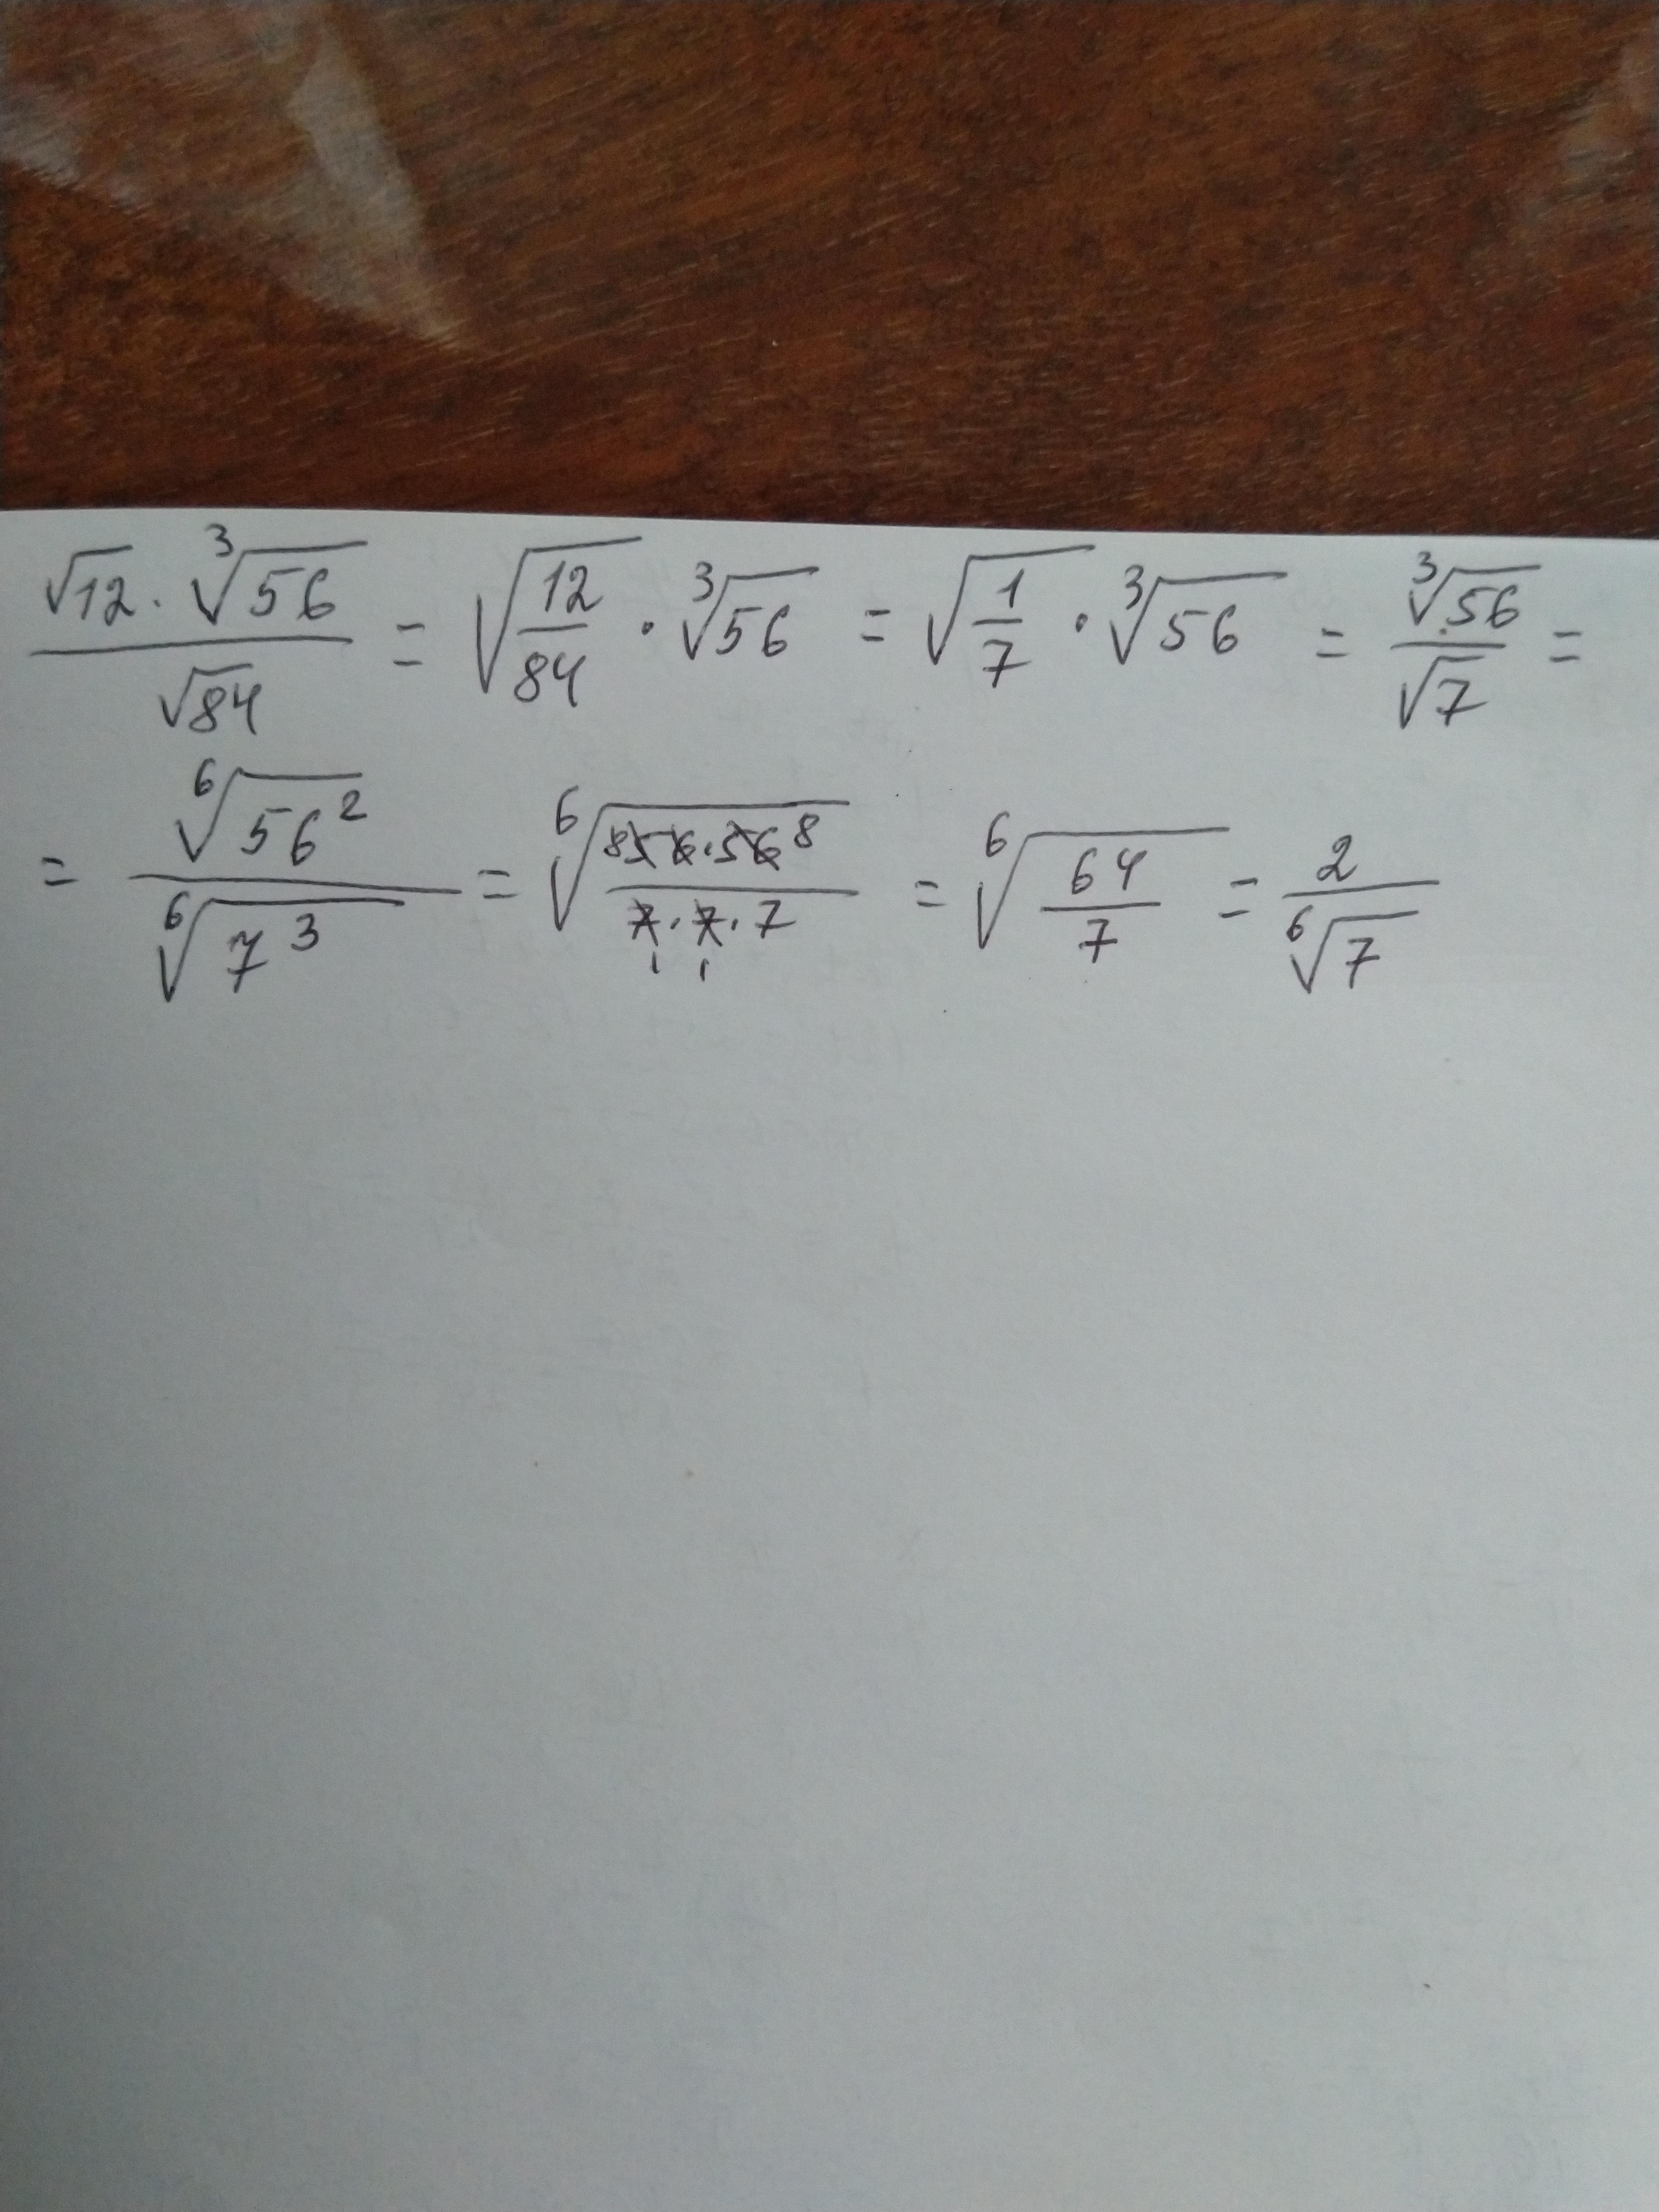 √12 · ∛56 / √84 = √(12/84) · ∛56 = √(1/7) · ∛56 = ∛56 / √7 =
= ⁶√(56²) / ⁶√(7³) = ⁶√(8 56 · 56 8 / 7 · 7 · 7) 1 1 = ⁶√(64/7) = 2 / ⁶√7